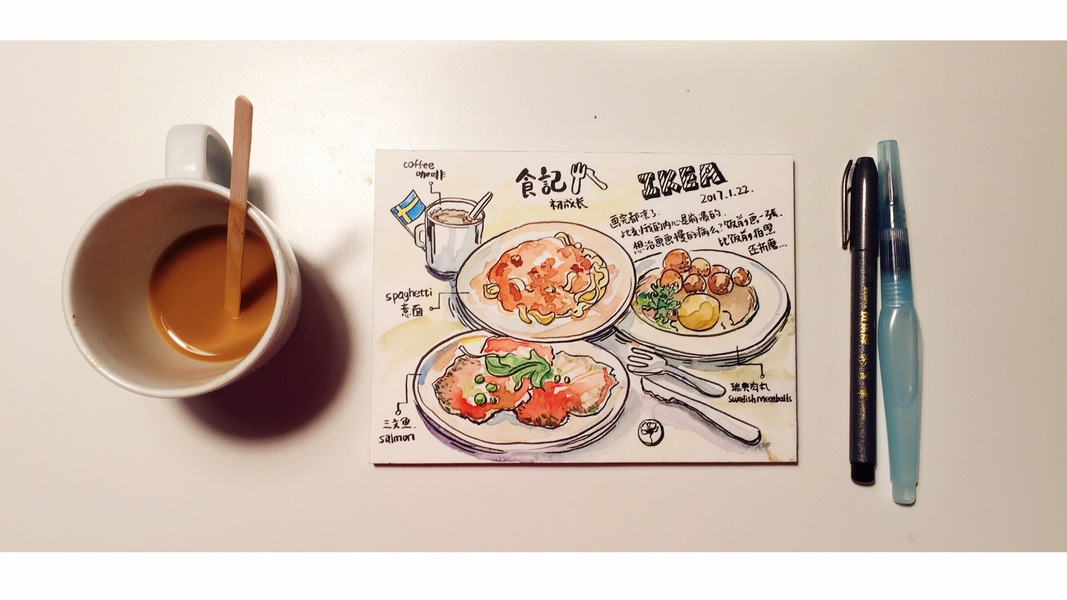 coffee
咖啡
食記
IKEA
2017.1.22.
画完都凉了.
此刻我的内心是崩溃的.
想治画画慢的病么?饭前画一张.
比饭前拍照
还折磨...
spaghetti
意面
瑞典肉丸
Swedish meatballs
三文鱼.
salmon